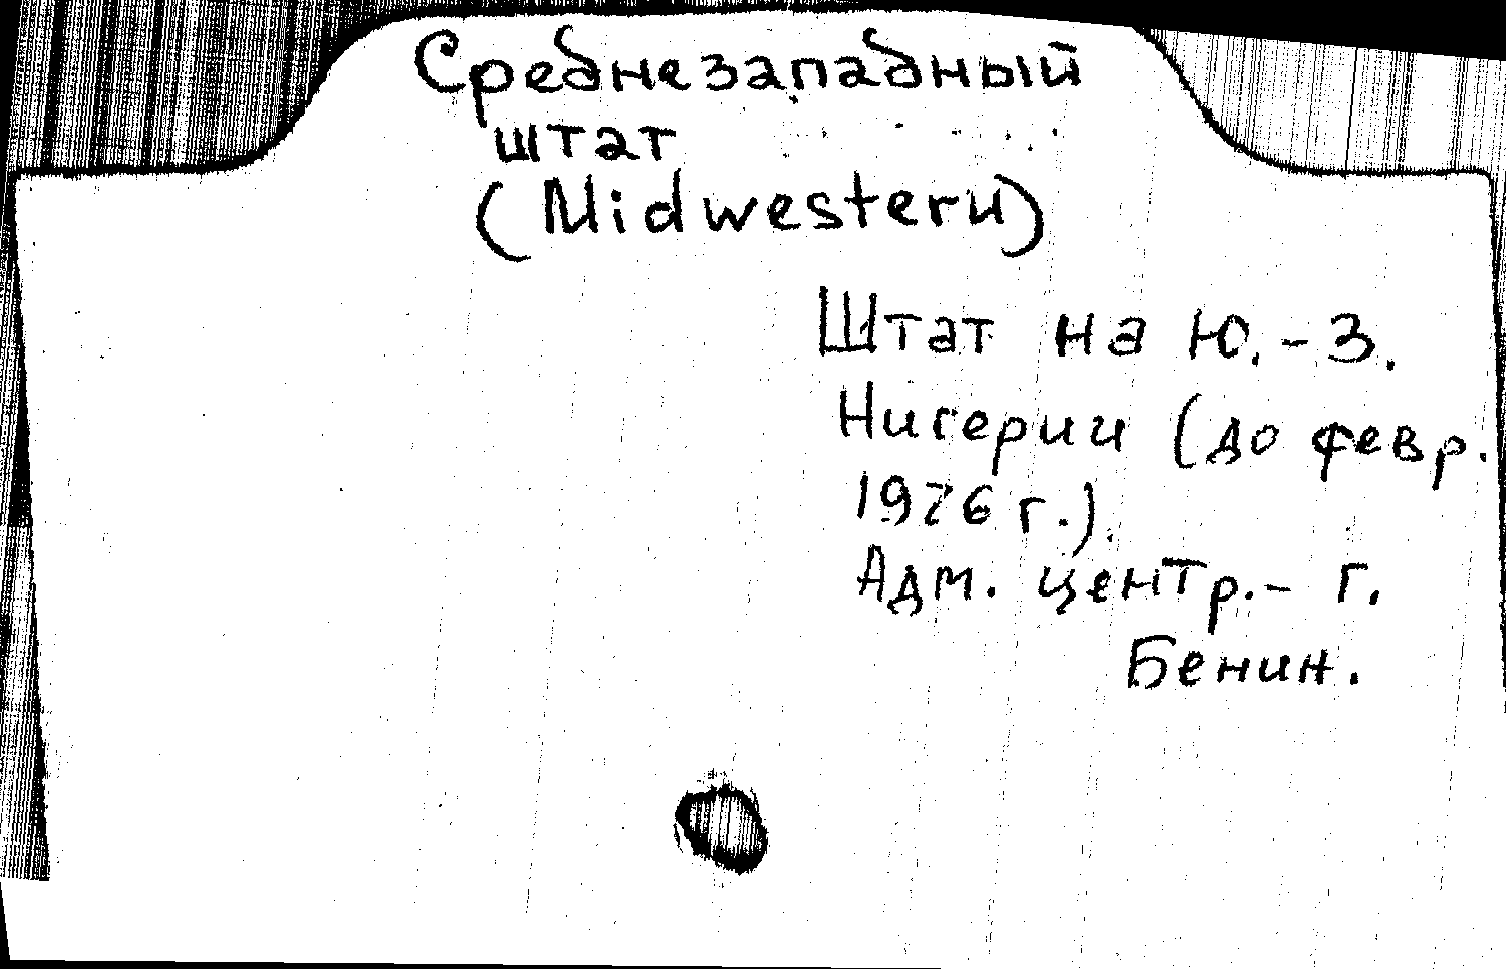 Среднезападный
штат
(Midwestern)
Штат на Ю.-З.
Нигерии (до февр.
1976 г.).
Адм. центр.- г.
Бенин.